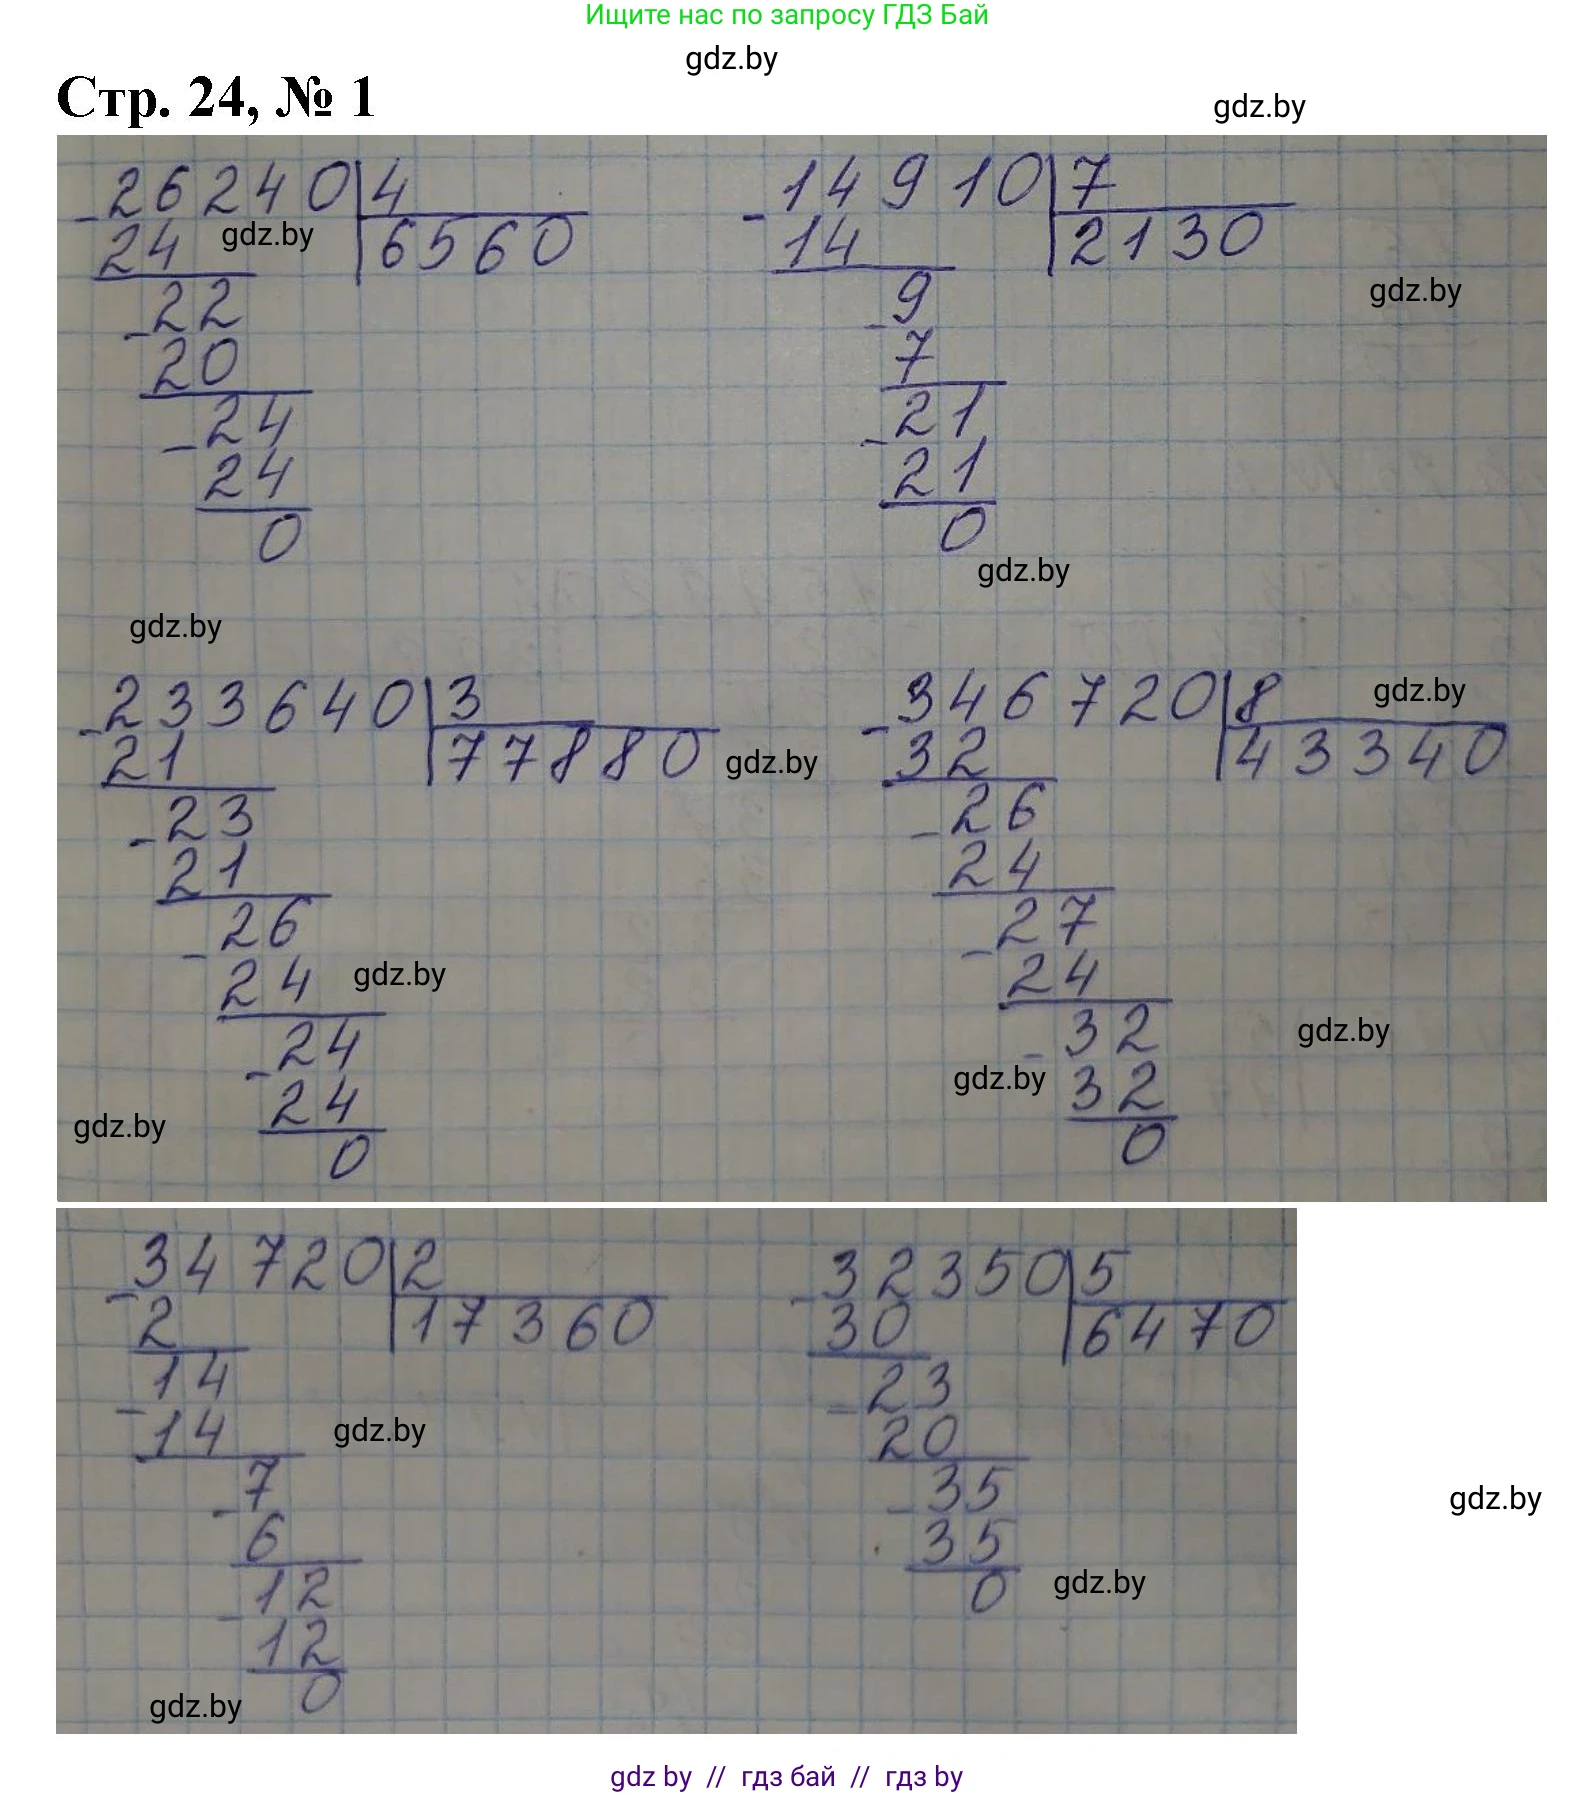 Ищите нас по запросу ГДЗ Бай
gdz.by
Стр. 24, № 1
gdz.by
-26240 4
24 6560
gdz.by
-22
20
-24
24
0
-14910 7
14 2130
gdz.by
-9
7
-21
21
0
gdz.by
gdz.by
-233640 3
21 77880
gdz.by
-23
21
-26
24
gdz.by
-24
24
0
gdz.by
-346720 8
gdz.by
32 43340
-26
24
-27
24
-32
gdz.by
gdz.by
32
0
-34720 2
2 17360
-14
14
gdz.by
-7
6
-12
12
0
gdz.by
-32350 5
30 6470
-23
20
-35
35
0
gdz.by
gdz.by
gdz by // гдз бай // гдз by